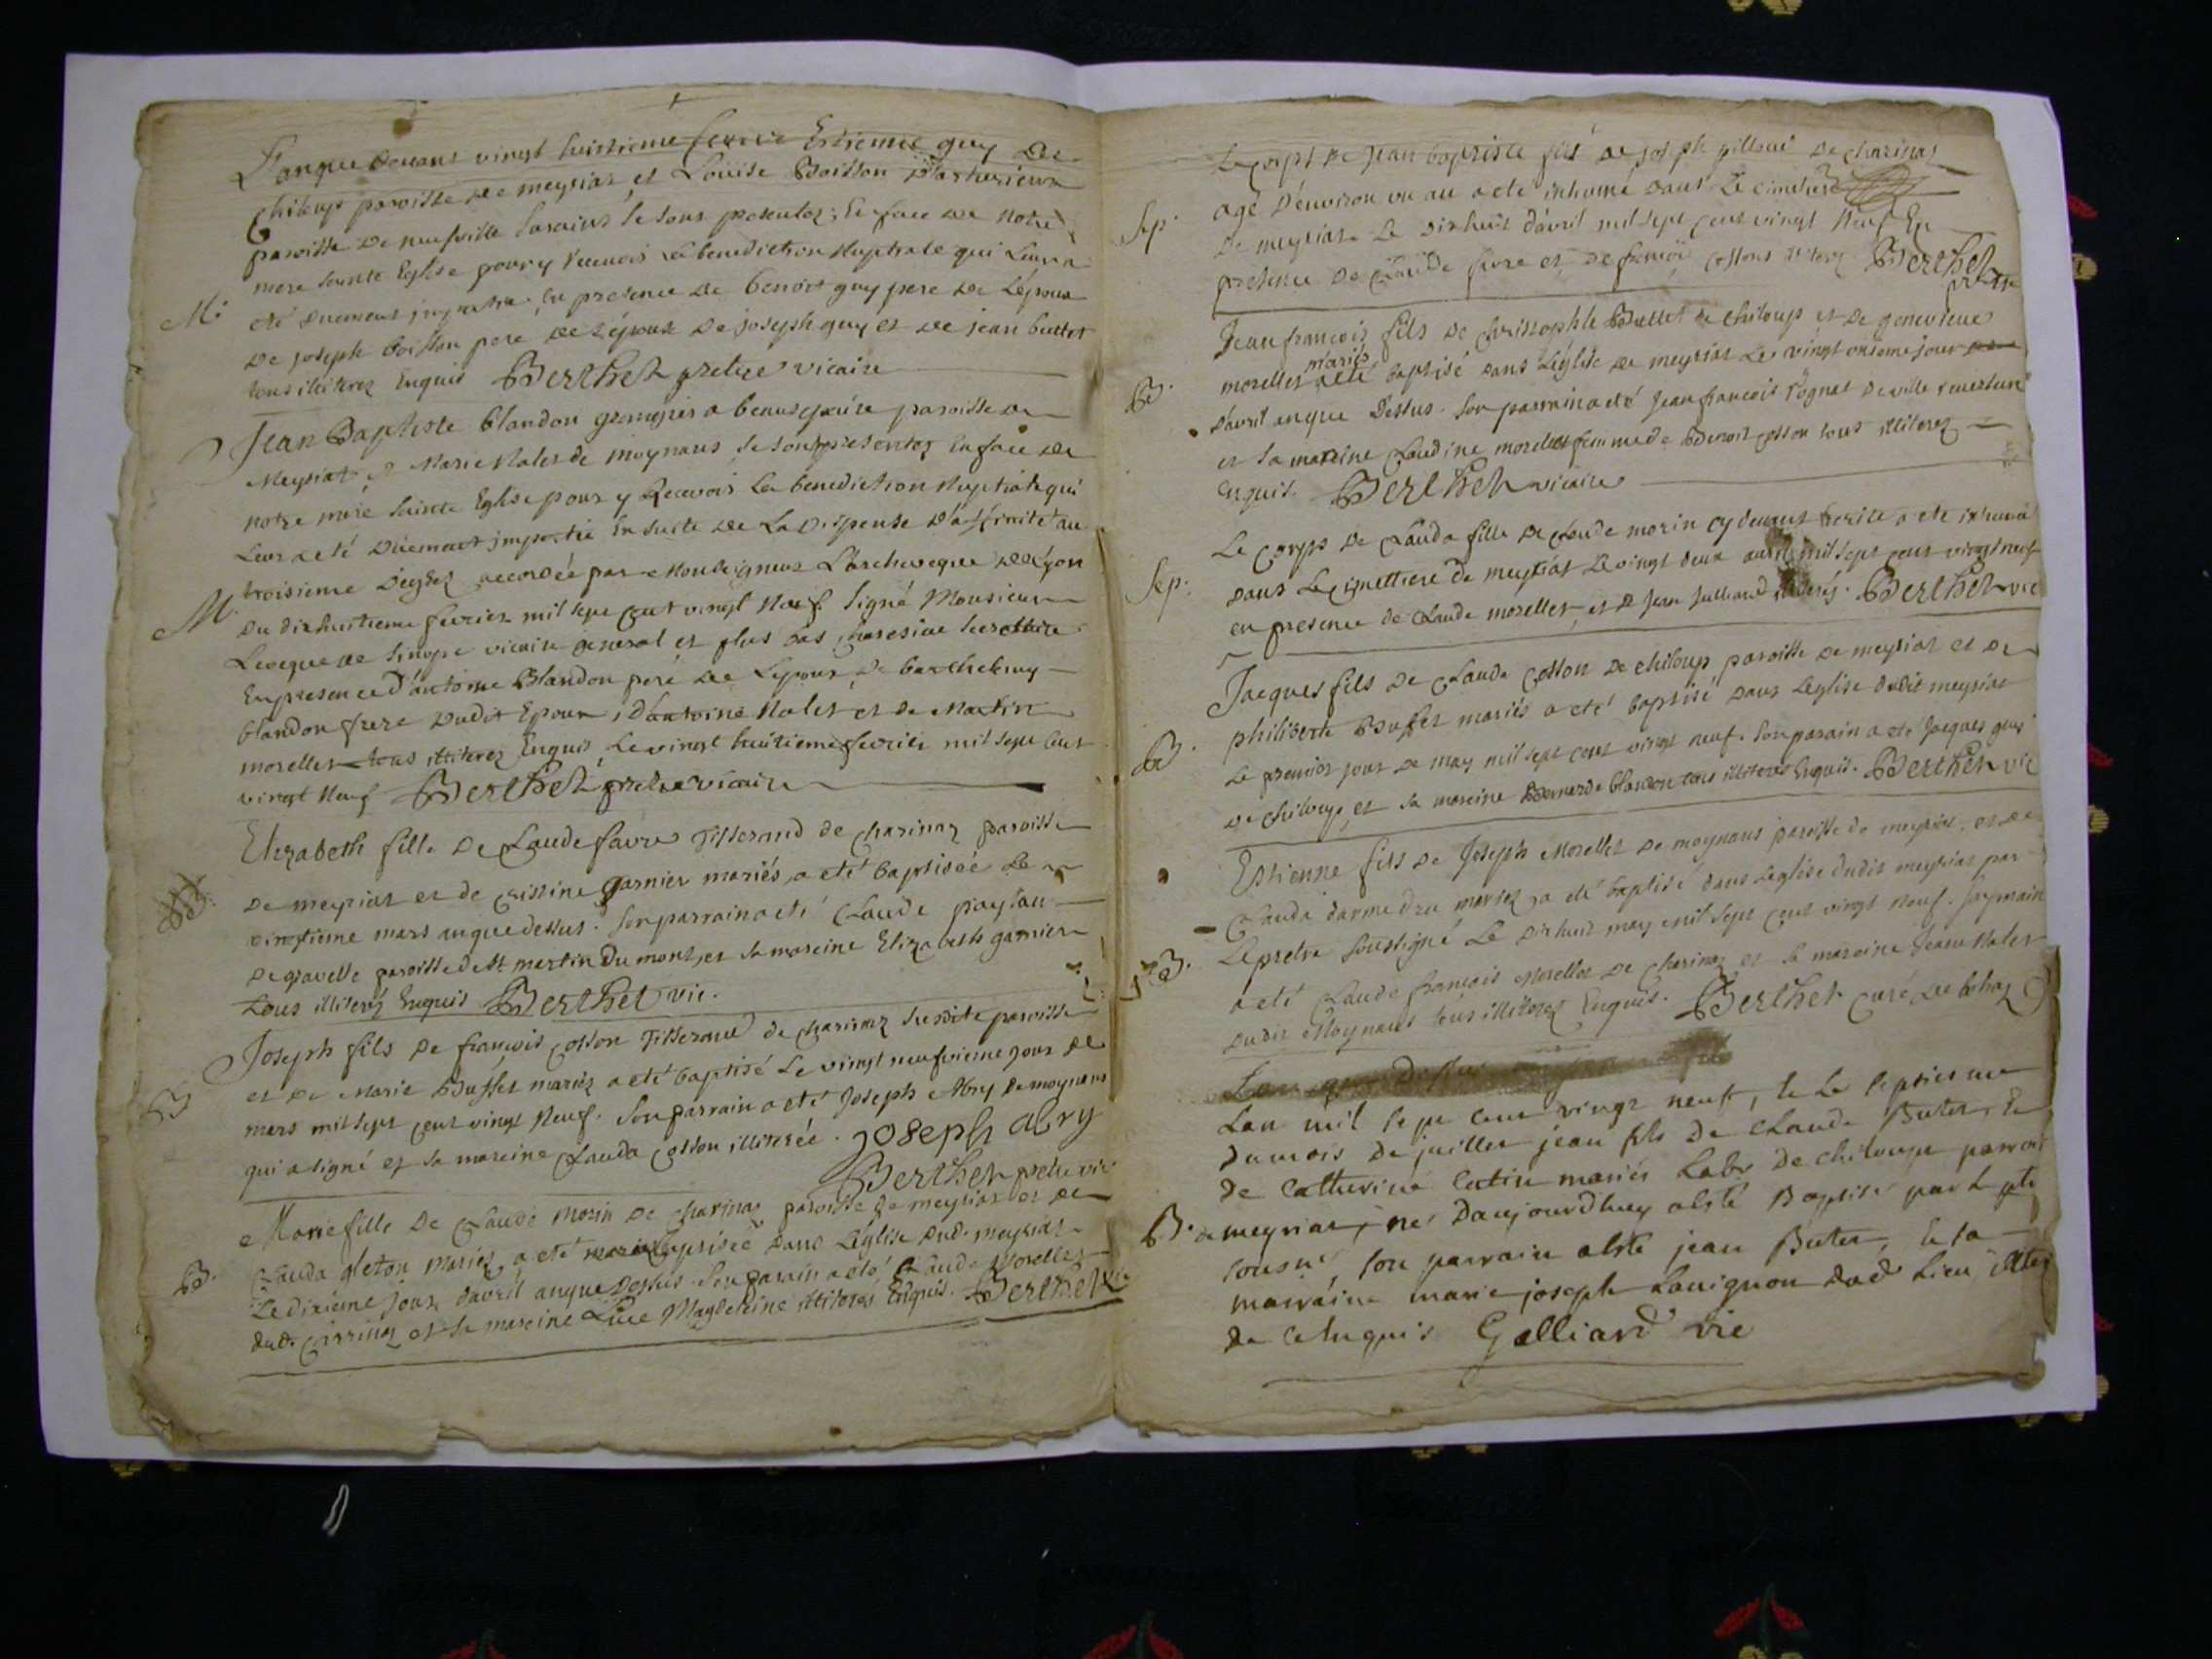 L'anque devant vingt huictieme fevrie Estienne guy De
chiloup paroisse de meyriat et Louise Boisson
paroisse De neufville se sont presentez En face De Notre
mere sainte Eglise pour y recevoir La benediction Nuptiale qui Leur a
M. eté En presence De benoit guy pere De L'epoux
De joseph boisson pere De L'épouse De joseph guy et De jean buttet
tous illiterez Enquis Berthet pretre vicaire
Jean Baptiste blandon granger a paroisse De
Meyriat et Marie Nalet de moynans se sont presentez En face De
notre mere sainte Eglise pour y Recevoir La benediction Nuptiale qui
Leur a eté Duement impartie En suite De La Dispense D'affinité au
troisieme Degrez accordée par Monseigneur L'archeveque De Lyon
M. Du dix huitieme fevrier mil sept cent vingt Neuf signé Monsieur
Leveque De sinope vicaire general et plus bas
En presence d'antoine Blandon pere De L'epoux De barthelemy
blandon frere Dudit Epoux, D'antoine Nalet et De Martin
morellet tous illiterez Enquis Le vingt huitieme fevrier mil sept cent
vingt Neuf Berthet pretre vicaire
Elizabeth fille De Claude favre Tisserand de charinaz paroisse
De meyriat et de cristine garnier mariés, a eté baptiséé Le
B. vingtieme mars anque dessus. Son parrain a eté Claude
De gravelle paroisse de st martin Du mont, et sa mareine Elizabeth garnier
tous illiteréz Enquis Berthet vic.
Joseph fils De françois cotton Tisserand de charinaz susdite paroisse
B et De Marie Buffet mariéz a eté baptisé Le vingt neufvieme jour De
mars mil sept cent vingt Neuf. Son parrain a eté Joseph Abry De moynans
qui a signé et sa mareine Clauda cotton illiterée. joseph abry
Berthet pretre vic
Marie fille De Claude morin De charinaz paroisse De meyriat et De
B. Clauda gleton mariéz, a eté baptiséé Dans L'Eglise Dud. meyriat
Le dixieme jour d'avril anque Dessus. Son parain a eté Claude Morellet
dud. et sa mareine Magdeleine illiterez Enquis. Berthet vic
Le corps De jean baptiste fils De joseph pilloud De charinaz
agé D'environ un an a eté inhumé Dans Le cimetiere
Sep. De meyriat Le dix huit d'avril mil sept cent vingt Neuf En
presence De Claude favre et De françois cottons illiterez Berthet
pretre
Jean françois fils De christophle Buttet De chiloup et De genevieve
mariés
B. morellet a eté baptisé Dans L'église De meyriat Le vingt onsieme jour
D'avril anque Dessus. Son parrain a eté Jean françois De ville
et sa mareine Claudine morellet femme de Benoit cotton tous illiterez
Enquis. Berthet vicaire
Le corps De Clauda fille De Claude morin cy devant a eté inhumé
Sep. Dans Le cimettiere De meyriat Le vingt deux avril mil sept cent vingt neuf
en presence De Claude morellet, et De Jean julliand illiterés. Berthet vic
Jacques fils De Claude Cotton De chiloup paroisse De meyriat et De
B. philiberte Buffet mariés a eté baptisé Dans L'eglise dudit meyriat
Le premier jour De may mil sept cent vingt neuf. Son parain a eté Jacques guy
De chiloup, et sa mareine Bernarde blandon tous illiterez Enquis. Berthet vic
Estienne fils De Joseph Morellet De moynans paroisse de meyriat, et De
Clauda mariez, a eté baptisé dans L'eglise dudit meyriat par
B. Le pretre soussigné Le dix huit may mil sept cent vingt neuf. Son parrain
a eté Claude françois Morellet De charinaz et sa mareine Jeane Nalet
Dudit Moynans tous illiterez Enquis. Berthet curé De
Lan mil sept cent vingt neuf, le septiesme
du mois de juillet jean fils de Claude Butet, Et
de Catherine mariés Labr de chiloup parroisse
B. de meyriat, né Daujourdhuy a esté Baptisé par Le
son parrain a esté jean Butet, Et sa
marraine marie joseph dud Lieu
de ce Enquis Galliard vic